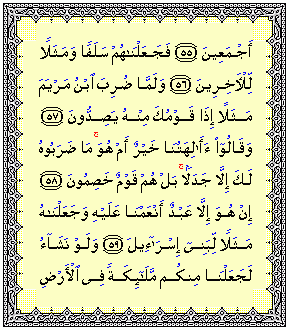 أَجْمَعِينَ ﴿٥٥﴾ فَجَعَلْنَـٰهُمْ سَلَفًا وَمَثَلًا
لِّلْـَٔاخِرِينَ ﴿٥٦﴾ وَلَمَّا ضُرِبَ ٱبْنُ مَرْيَمَ
مَثَلًا إِذَا قَوْمُكَ مِنْهُ يَصِدُّونَ ﴿٥٧﴾
وَقَالُوٓا۟ ءَأَـٰلِهَتُنَا خَيْرٌ أَمْ هُوَ ۚ مَا ضَرَبُوهُ
لَكَ إِلَّا جَدَلًۢا ۚ بَلْ هُمْ قَوْمٌ خَصِمُونَ ﴿٥٨﴾
إِنْ هُوَ إِلَّا عَبْدٌ أَنْعَمْنَا عَلَيْهِ وَجَعَلْنَـٰهُ
مَثَلًا لِّبَنِىٓ إِسْرَٰٓءِيلَ ﴿٥٩﴾ وَلَوْ نَشَآءُ
لَجَعَلْنَا مِنكُم مَّلَـٰٓئِكَةً فِى ٱلْأَرْضِ